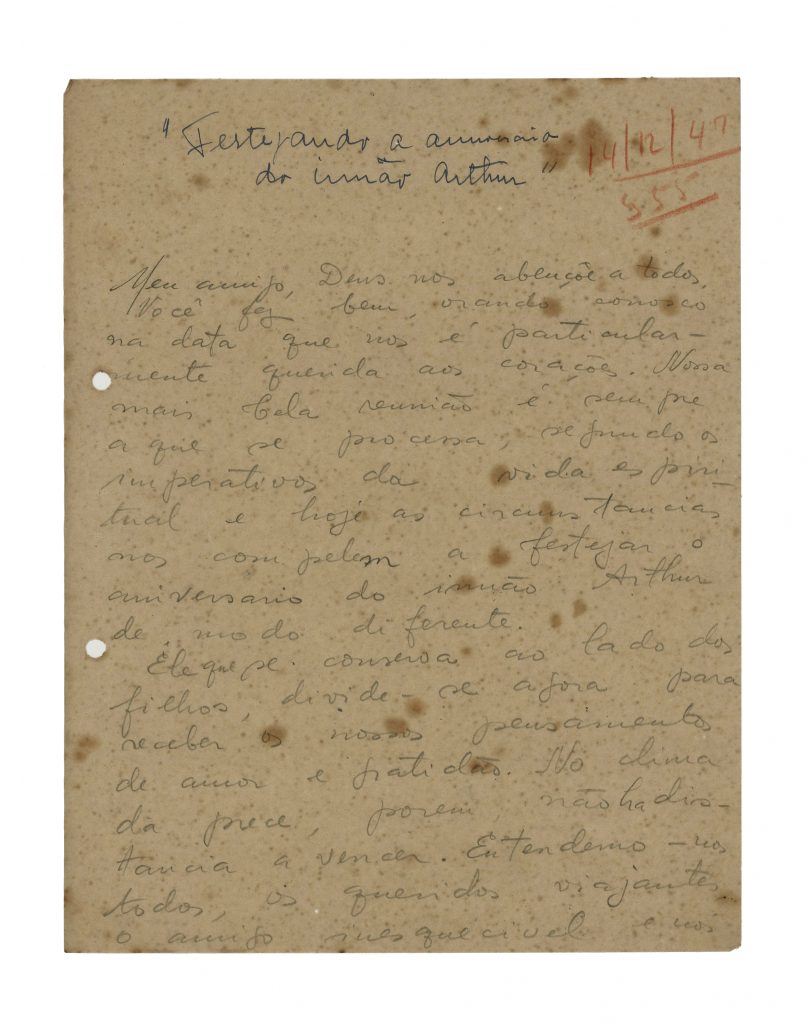 "Festejando o aniversario
do irmão Arthur"
14/12/47
S55
Meu amigo, Deus nos abençõe a todos.
Você fez bem, orando conosco
na data que nos é particular-
mente querida aos corações. Nossa
mais bela reunião é sempre
a que se processa, segundo os
imperativos da vida espiri-
tual e hoje as circunstancias
nos compelem a festejar o
aniversario do irmão Arthur
de modo diferente.
Êle que se conserva ao lado dos
filhos, divide-se agora para
receber os nossos pensamentos
de amor e gratidão. No clima
da prece, porem, não ha dis-
tancia a vencer. Entendemo-nos
todos, os queridos viajantes
o amigo inesquecivel e nós